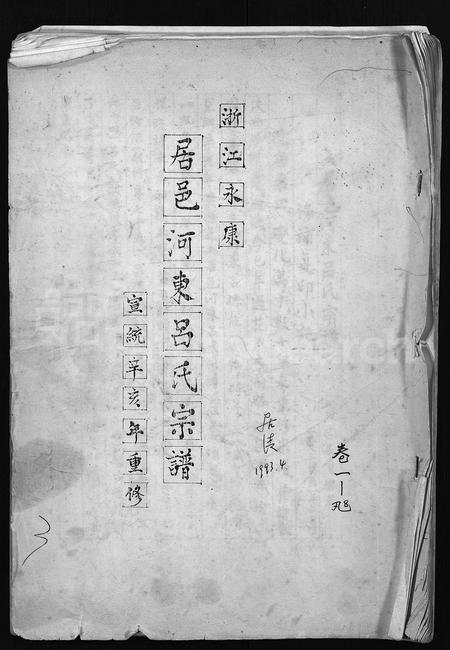 卷一
1993.4.
浙江永康
居邑河東呂氏宗譜
宣統辛亥年重修